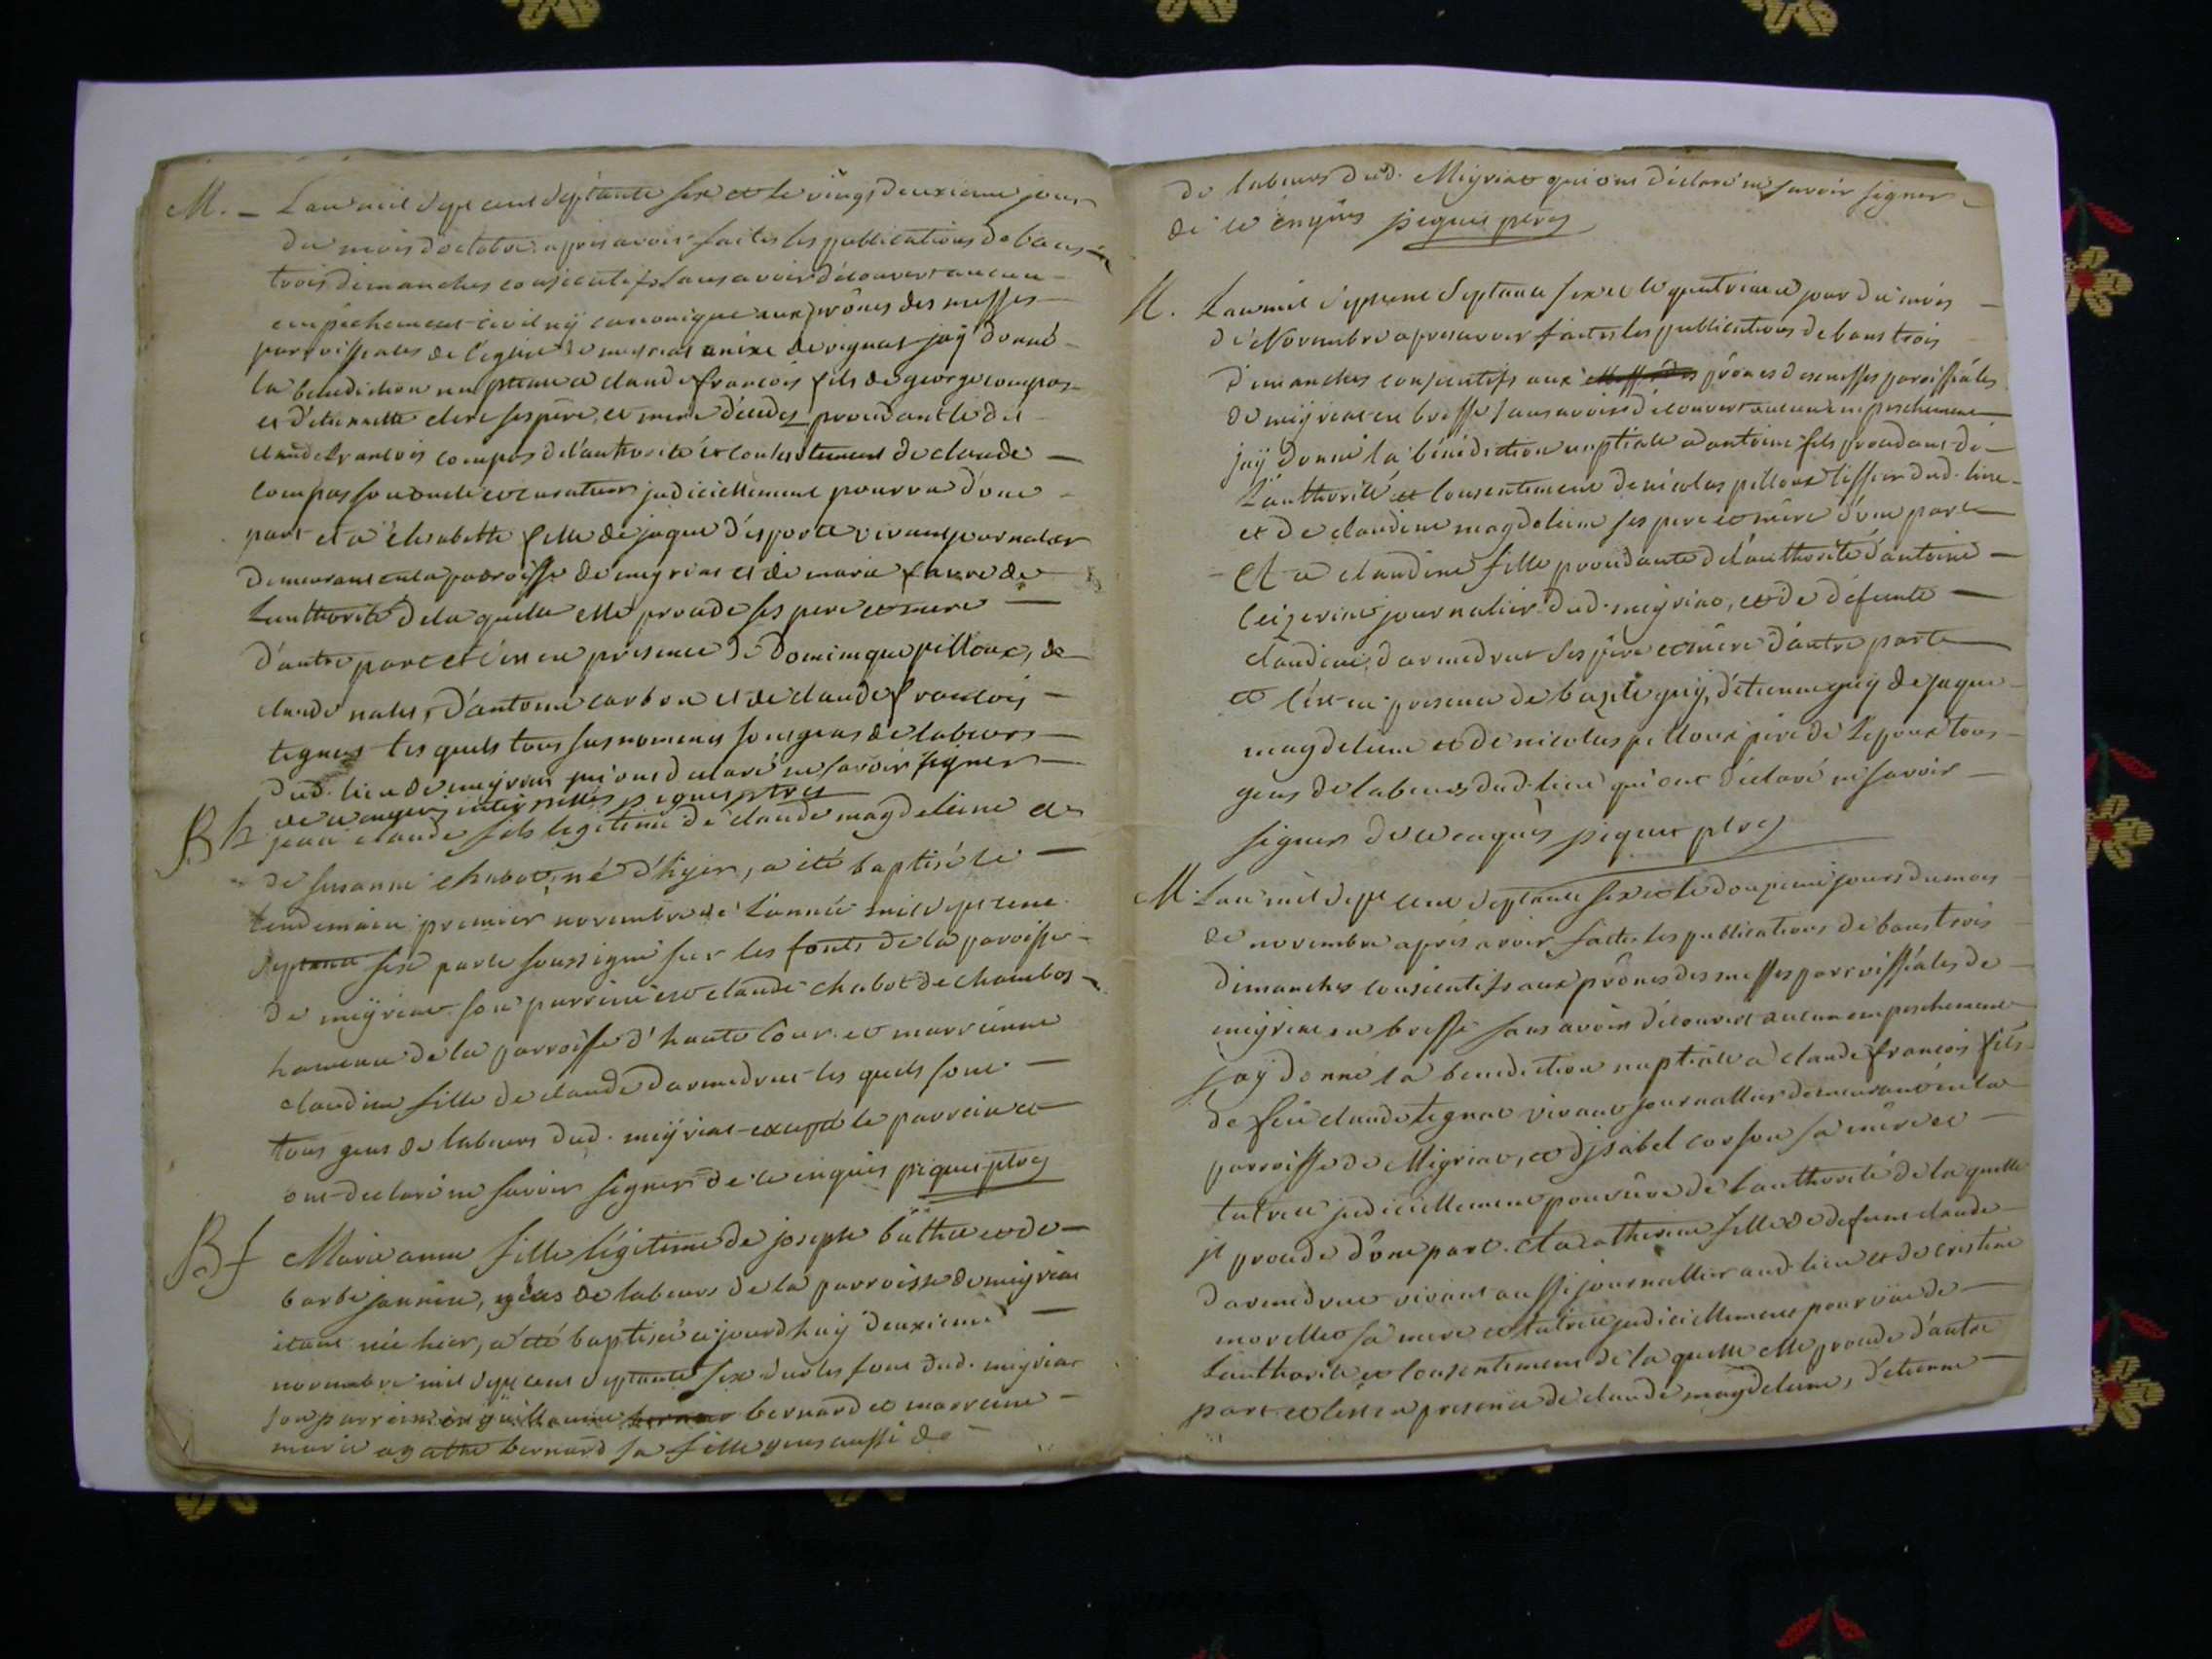 M. - Lan mil sept cent septante six et le vingt deuxieme jour
du mois d'octobre apres avoir faites les publications de bans
trois dimanches consecutifs sans avoir découvert aucun
empechement civil ny canonique aux prônes des messes
parroissiales de l'eglise de meyriat anixe de rignat jaÿ donné
la benediction nuptiale a claude francois fils de george compas
et d'étiennette clerc ses père et mere décédés procedant le dit
claude francois compas de l'authorité et consentement de claude
compas son oncle et curateur judiciellement pourvu d'une
part et a elisabette fille de jaque desporte vivant journalier
demeurant en la parroisse de meyriat et de marie favre de
Lauthorité de la quelle elle procede ses pere et mere
d'autre part et c'est en presence de Dominique pilloux, de
claude nales, d'antoine carbon et de claude francois
tegnat les quels tous susnommés sont gens de labeurs
dud. lieu de meyriat qui ont declaré ne savoir signer
de ce enquis interpellés piquet ptre
B h jean claude fils legitime de claude magdeleine et
de susanne chabot, né d'hyer, a été baptisé le
lendemain premier novembre de l'année mil sept cent
septante six par le soussigné sur les fonts de la paroisse
de meÿriat son parrein est claude chabot de chambos
hameau de la parroisse d'hautecour et marreinne
claudine fille de claude darmedrut les quels sont
tous gens de labeurs dud. meÿriat excepté le parrein et
ont declaré ne savoir signer de ce enquis piquet ptre
B f Marie anne fille légitime de joseph buthie et de
barbe jannin, gens de labeurs de la parroisse de meyriat
étant née hier, a été baptisée ajourdhuÿ deuxieme
novembre mil sept cent septante six sur les font dud. meyriat
son parrein est guillaume bernard et marreine
marie agathe bernard sa fille gens aussi de
de labeurs dud. Meyriat qui ont déclaré ne savoir signer
de ce enquis piquet ptre
M. Lan mil sept cent septante six et le quatrieme jour du mois
de Novembre apres avoir faites les publications de bans trois
dimanches consecutifs aux prônes des messes paroissiales
de meÿriat en bresse sans avoir découvert aucun empeschement
jaÿ donné la bénédiction nuptiale a antoine fils procedant de
L'authorité et consentement de nicolas pilloux tissier dud. lieu
et de claudine magdeleine ses pere et mère d'une part
Et a claudine fille procedante de l'authorité d'antoine
leizeriat journalier dud. meyriat, et de défunte
claudine darmedrut ses père et mère d'autre part
et c'est en presence de bazile guÿ, d'étienne guÿ de jaque
magdeleine et de nicolas pilloux père de l'epoux tous
gens de labeurs dud. lieu qui ont déclaré ne savoir
signer de ce enquis piquet ptre
M. Lan mil sept cent septante six et le douzieme jours du mois
de novembre apres avoir faites les publications de bans trois
dimanches consecutifs aux prônes des messes parroissiales de
meyriat en bresse sans avoir découvert aucun empeschement
jaÿ donné la benediction nuptiale a claude francois fils
de feu claude tegnat vivant journallier demeurant en la
parroisse de Meyriat, et d'jsabel corson sa mère et
tutrice judiciellement pourvüe de lauthorité de la quelle
jl procede d'une part. Et a catherine fille de defunt claude
darmedrut vivant aussi journallier aud. lieu et de cristine
morellet sa mere et tutrice judiciellement pourvüe de
Lauthorité et consentement de la quelle elle procede d'autre
part et c'est en presence de claude magdeleine, d'etienne